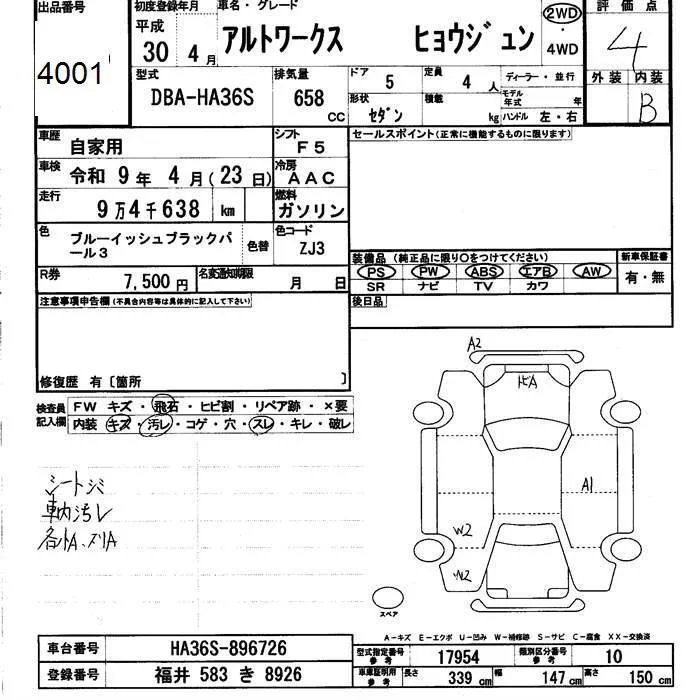 出品番号 初度登録年月 車名・グレード 2WD 評価点
4001 平成 30 4月 アルトワークス ヒョウジュン ・ 4WD 4
型式 排気量 ドア 5 定員 4人 ディーラー・並行 外装 内装
DBA-HA36S 658 CC 形状 セダン 積載 kg モデル年式 年 ハンドル 左・右 B
車歴 自家用 シフト F5 セールスポイント(正常に機能するものに限ります)
車検 令和 9年 4月(23日) 冷房 AAC
走行 9万4千638 km 燃料 ガソリン
色 ブルーイッシュブラックパール3 色替 色コード ZJ3
装備品(純正品に限り○をつけてください) 新車保証書
PS PW ABS エアB AW 有・無
SR ナビ TV カワ
R券 7,500円 名変通知期限 月 日 後日品
注意事項申告欄(不具合内容等は具体的に記入して下さい)
修復歴 有〔箇所 〕
検査員記入欄 FW キズ・飛石・ヒビ割・リペア跡・×要
内装 キズ・汚レ・コゲ・穴・スレ・キレ・破レ
車内汚レ
A2
A1
W2
W2
スペア
A-キズ E-エクボ U-凹み W-補修跡 S-サビ C-腐食 XX-交換済
車台番号 HA36S-896726 型式指定番号 参考 17954 類別区分番号 参考 10
登録番号 福井 583 き 8926 車庫証明用 参考 長さ 339 cm 幅 147 cm 高さ 150 cm